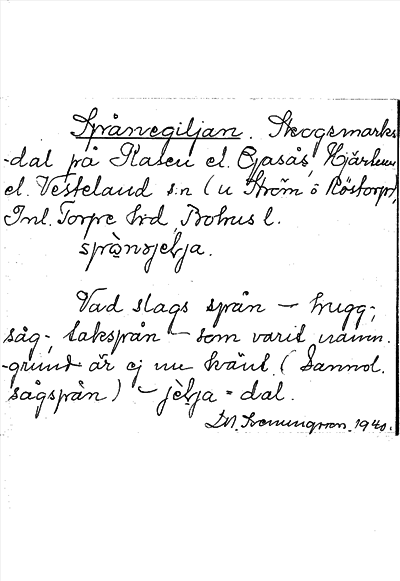 Spånegiljan. Skogsmarks
-dal på Kasen el. Gasås, Hjärtum
el. Västerland s:n (u Ström o Röstorp),
Inl. Torpe hrd, Bohus l.
språ̀nəjelja.
Vad slags spån – hugg-,
såg-, takspån – som varit namn-
-grund är ej nu känt. (Sannol.
sågspån) – jèlja = dal.
1940.